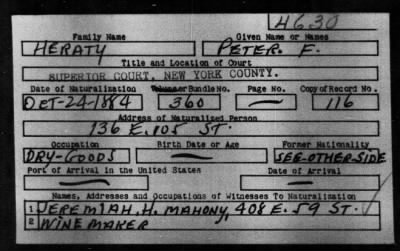 4630
Family Name Given Name or Names
HERATY PETER. F.
Title and Location of Court
SUPERIOR COURT, NEW YORK COUNTY.
Date of Naturalization Volume or Bundle No. Page No. Copy of Record No.
OCT-24-1884 360 — 116
Address of Naturalized Person
136 E. 105 ST.
Occupation Birth Date or Age Former Nationality
DRY-GOODS — SEE-OTHER-SIDE
Port of Arrival in the United States Date of Arrival
— —
Names, Addresses and Occupations of Witnesses To Naturalization
1 JEREMIAH. H. MAHONY, 408 E. 59 ST.
2 WINE MAKER